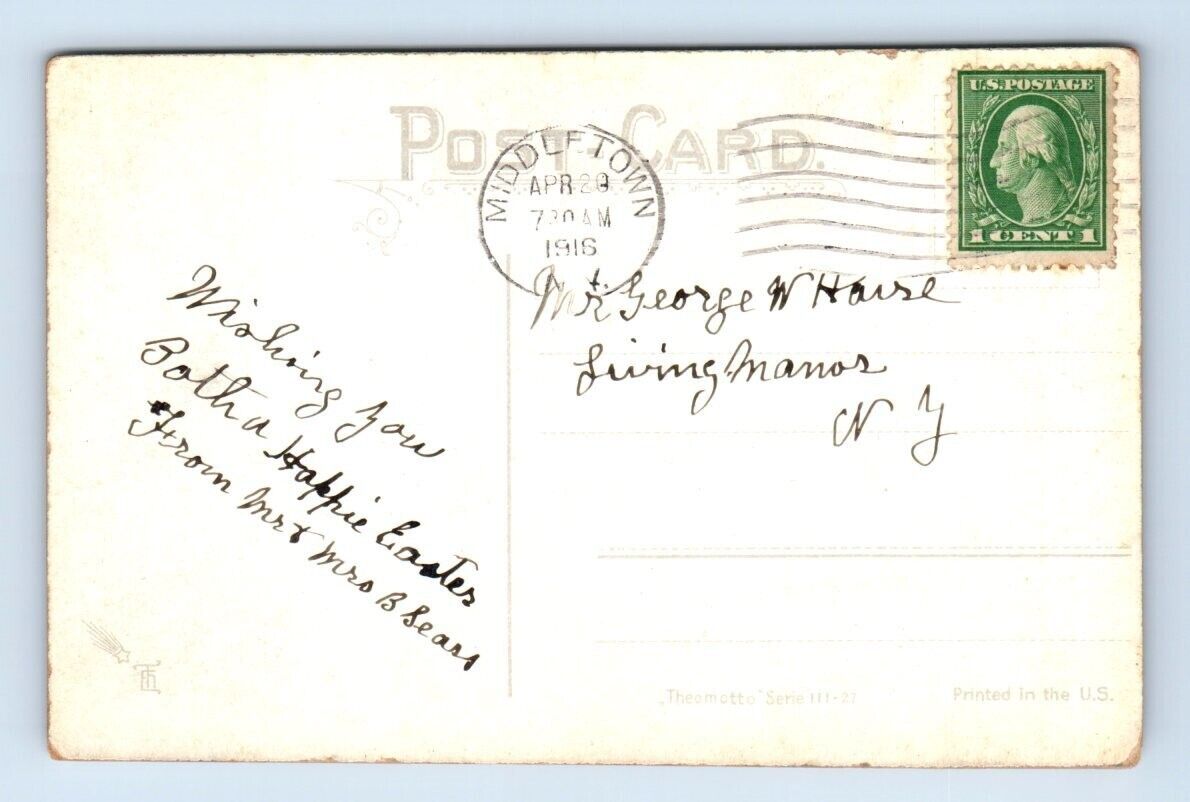 POST-CARD.
U.S. POSTAGE
1 CENT 1
MIDDLETOWN
APR 20
730 AM
1916
Mr George W Hause
Living Manor
N Y
Wishing You
Both a Happie Easter
From Mr & Mrs B Sears
„Theomotto" Serie III-27
Printed in the U.S.